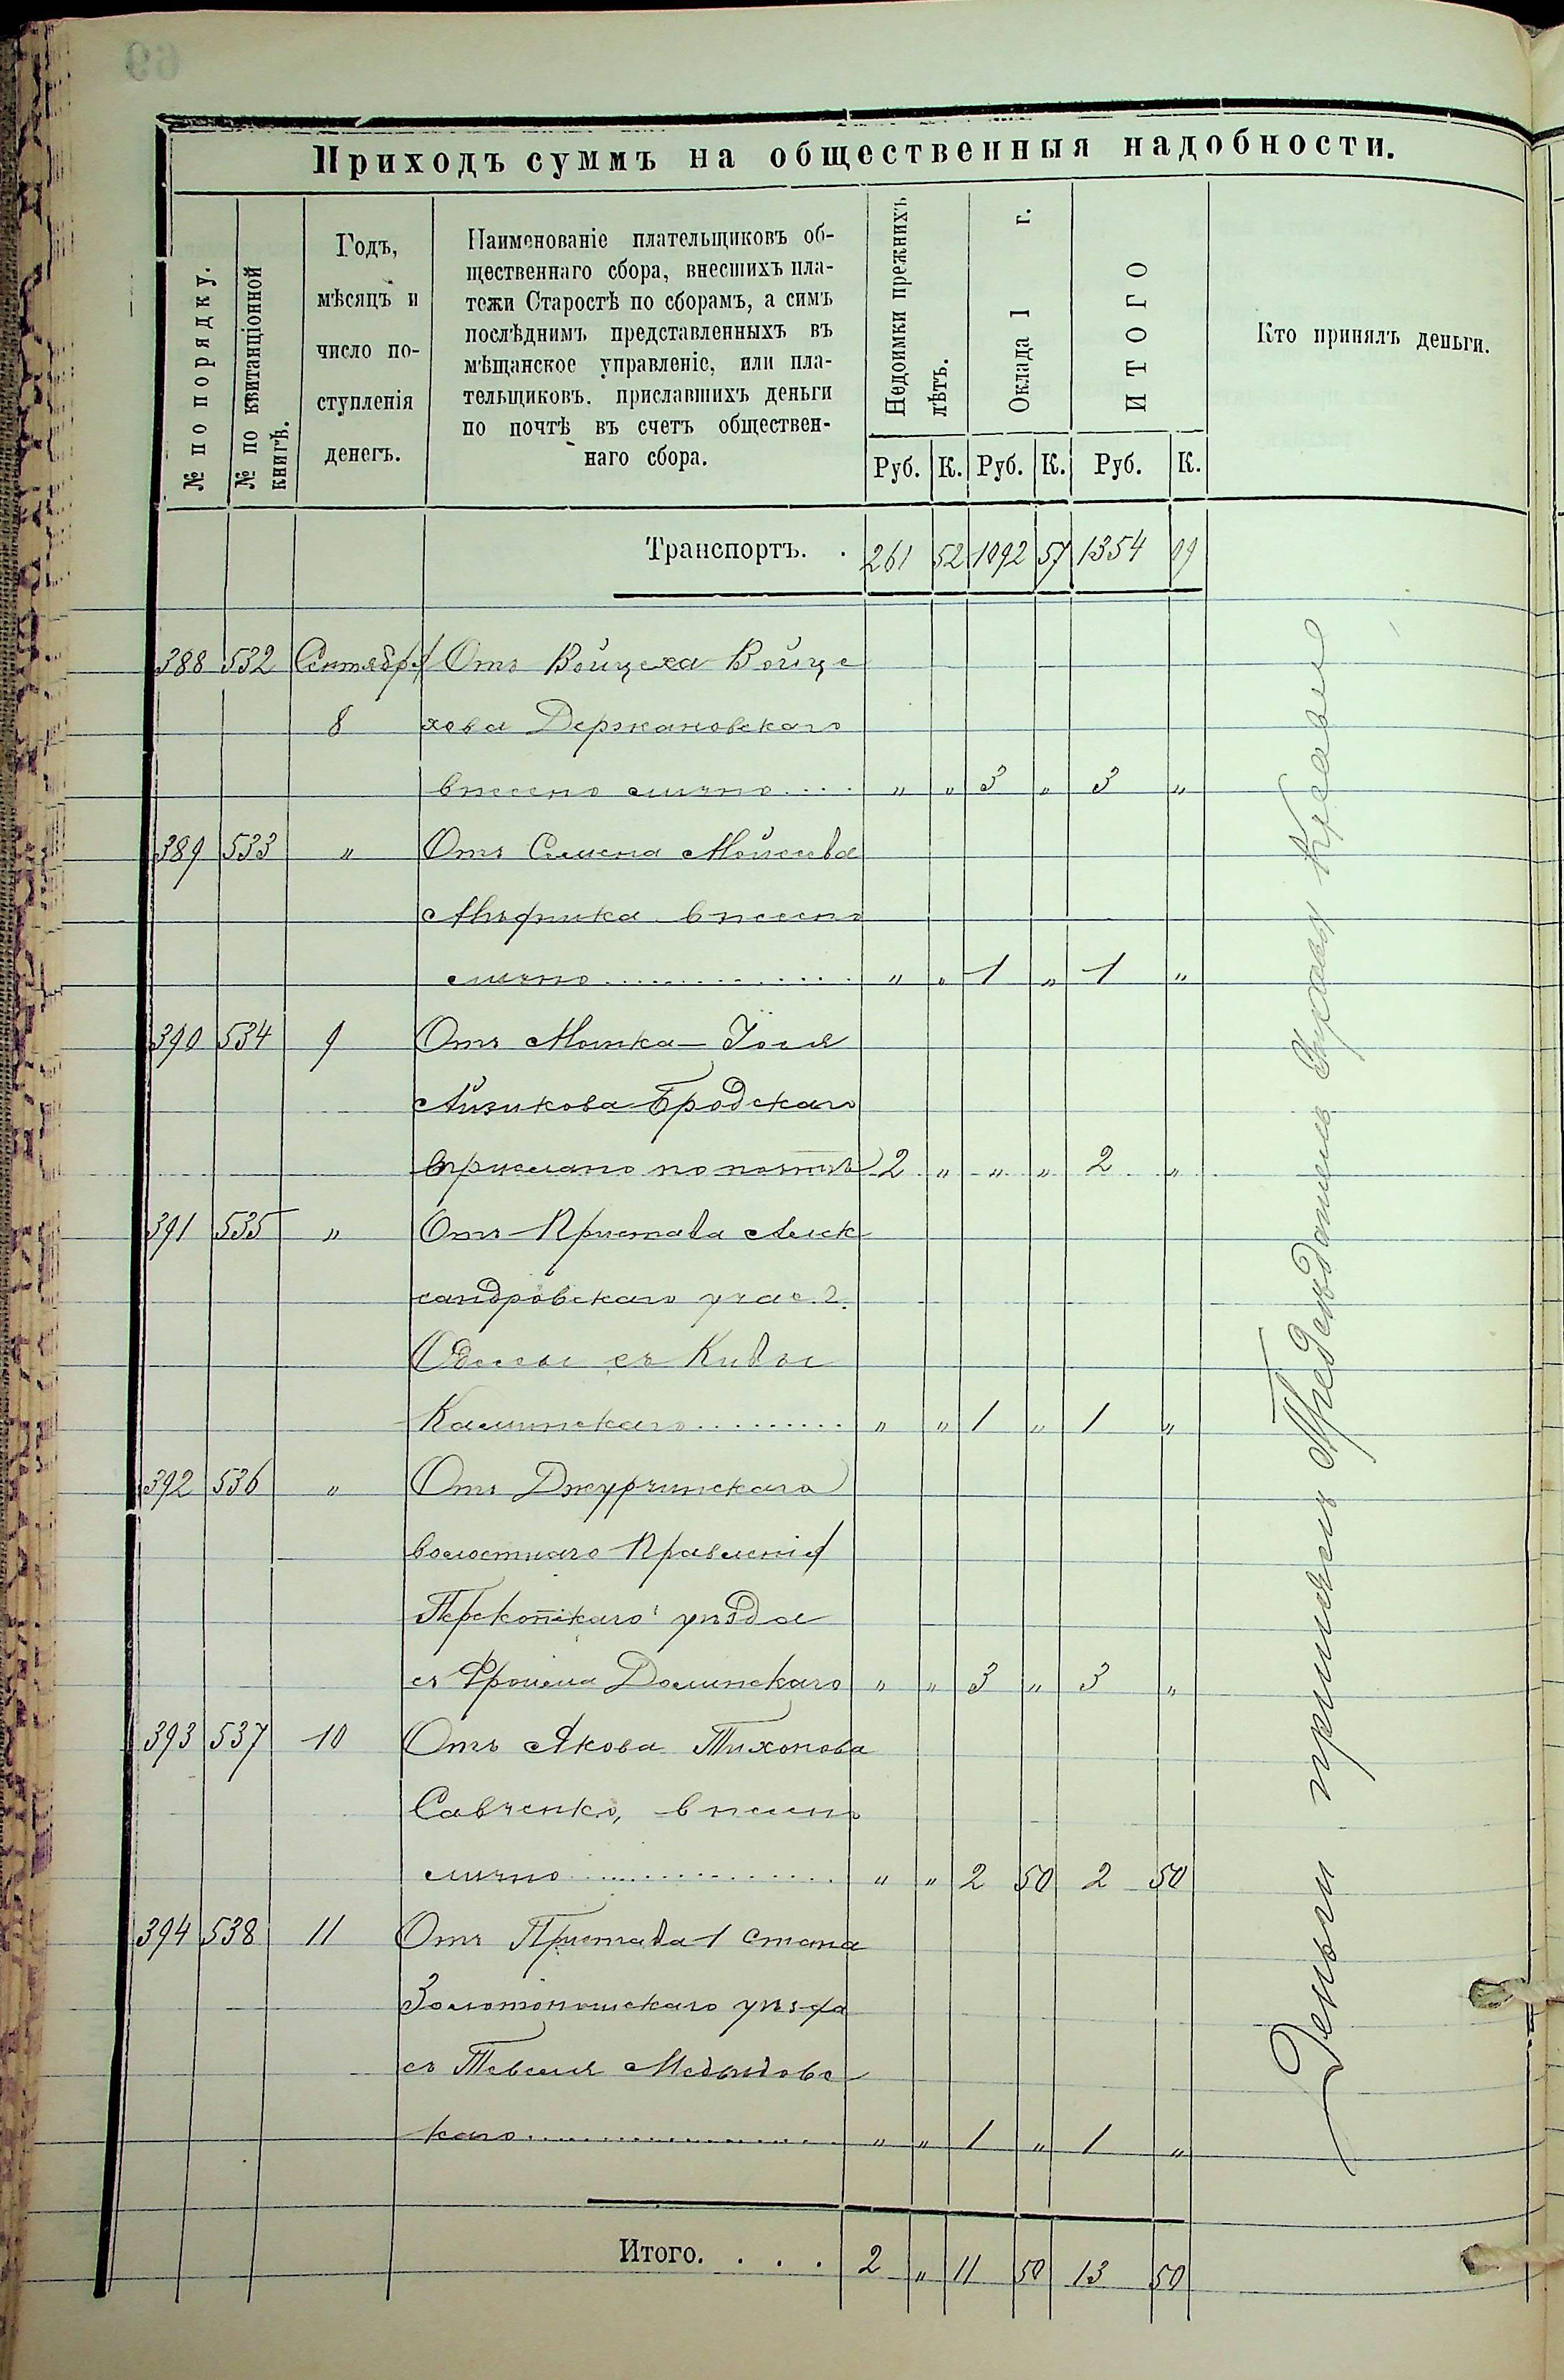 69
Приходъ суммъ на общественныя надобности.
№ по порядку.
№ по квитанціонной
книгѣ.
Годъ,
мѣсяцъ и
число по-
ступленія
денегъ.
Наименованіе плательщиковъ об-
щественнаго сбора, внесшихъ пла-
тежи Старостѣ по сборамъ, а симъ
послѣднимъ представленныхъ въ
мѣщанское управленіе, или пла-
тельщиковъ. приславшихъ деньги
по почтѣ въ счетъ обществен-
наго сбора.
Недоимки прежнихъ
лѣтъ.
Оклада 1 г.
ИТОГО
Кто принялъ деньги.
Руб. К. Руб. К. Руб. К.
Транспортъ. . 261 52 1092 57 1354 09
388 532 Сентября Отъ Войцеха Войце
8 хова Держановскаго
внесено лично.... " " 3 " 3 "
389 533 " Отъ Семена Мойсеева
внесено
лично............. " " 1 " 1 "
390 534 9 Отъ Мошка-Іося
Айзикова Бродскаго
прислано по почтѣ 2 " " " 2 "
391 535 " Отъ Пристава Алек
сандровскаго учас. г.
Одессы съ Кивы
Калинскаго......... " " 1 " 1 "
392 536 " Отъ Джурчинскаго
волостнаго Правленія
Перекопскаго уѣзда
съ Фроима Долинскаго " " 3 " 3 "
393 537 10 Отъ Якова Тихонова
Савченко, внесено
лично............... " " 2 50 2 50
394 538 11 Отъ Пристава 1 Стана
Золотоношскаго уѣзда
съ Тевеля Медвидовс
каго.................. " " 1 " 1 "
Итого. . . . 2 " 11 50 13 50
Деньги принялъ Предсѣдатель